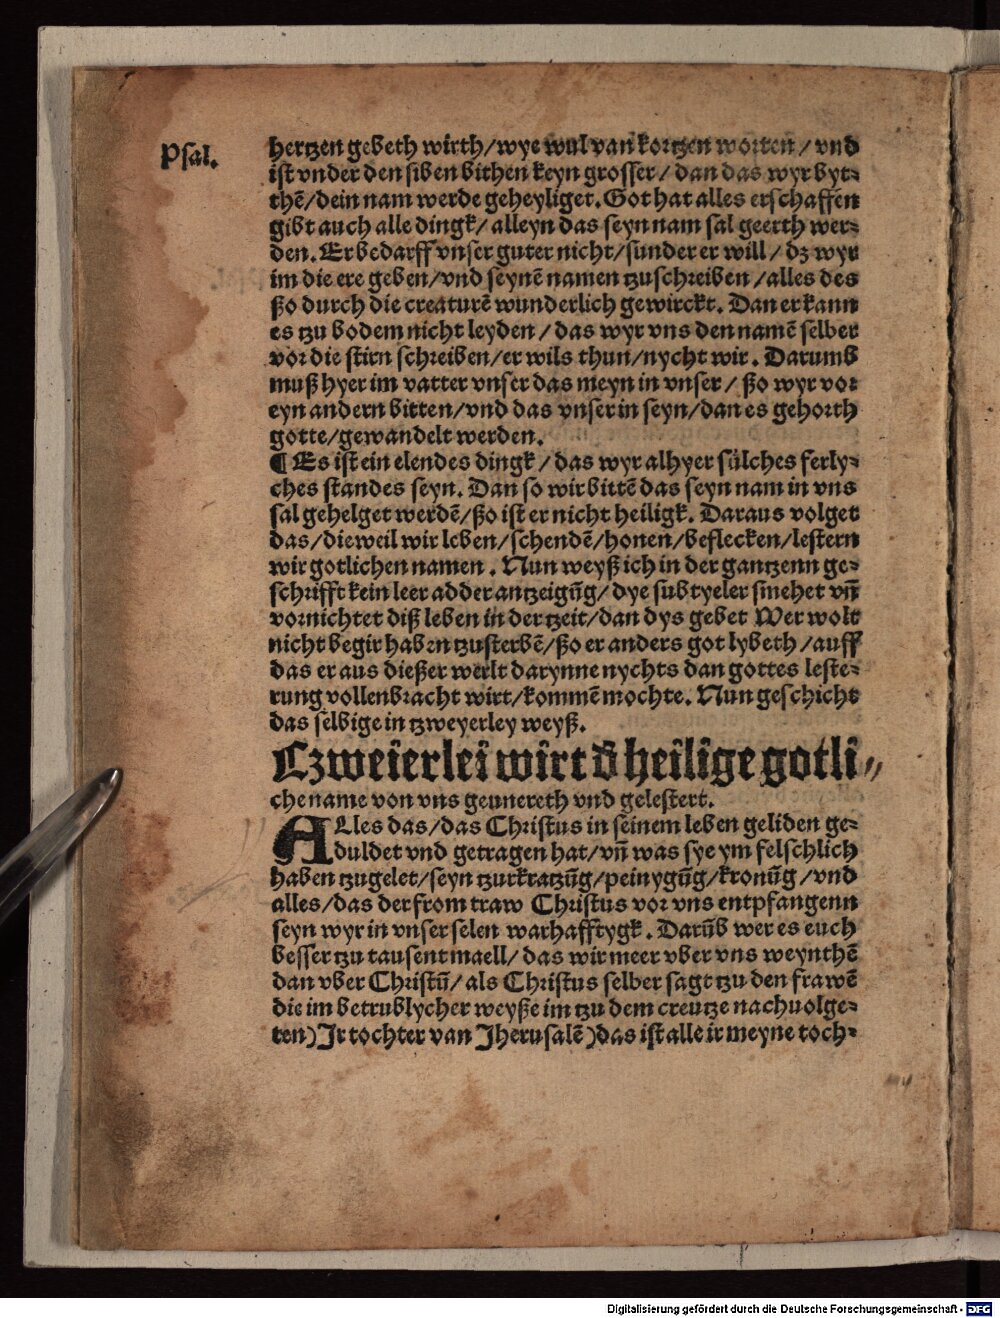 Psal.
hertzen gebeth wirth/wye wul van kortzen worten/vnd
ist vnder den siben bithen keyn grosser/dan das wyr byt-
thē/dein nam werde geheyliget. Got hat alles erschaffen
gibt auch alle dingk/alleyn das seyn nam sal geerth wer-
den. Er bedarff vnser guter nicht/sunder er will/dz wyr
im die ere geben/vnd seynē namen tzuschreiben/alles des
ßo durch die creaturē wunderlich gewirckt. Dan er kann
es tzu bodem nicht leyden/das wyr vns den namē selber
vor die stirn schreiben/er wils thun/nycht wir. Darumb
muß hyer im vatter vnser das meyn in vnser/ßo wyr vor
eyn andern bitten/vnd das vnser in seyn/dan es gehorth
gotte/gewandelt werden.
¶ Es ist ein elendes dingk/das wyr alhyer sülches ferly-
ches standes seyn. Dan so wir bittē das seyn nam in vns
sal gehelget werdē/ßo ist er nicht heiligk. Daraus volget
das/dieweil wir leben/schendē/honen/beflecken/lestern
wir gotlichen namen. Nun weyß ich in der gantzenn ge-
schrifft kein leer adder antzeigūg/dye subtyeler smehet vn̄
vornichtet diß leben in der tzeit/dan dys gebet Wer wolt
nicht begir haben tzusterbē/ßo er anders got lybeth/auff
das er aus dießer werlt darynne nychts dan gottes leste-
rung vollenbracht wirt/kommē mochte. Nun geschicht
das selbige in tzweyerley weyß.
Czweierlei wirt d̄ heilige gotli„
che name von vns geunereth vnd gelestert.
ALles das/das Christus in seinem leben geliden ge-
duldet vnd getragen hat/vn̄ was sye ym felschlich
haben tzugelet/seyn tzurkratzūg/peinygūg/kronūg/vnd
alles/das der from traw Christus vor vns entpfangenn
seyn wyr in vnser selen warhafftygk. Darūb wer es euch
besser tzu tausent maell/das wir meer vber vns weynthē
dan vber Christū/als Christus selber sagt tzu den frawē
die im betrublycher weyße im tzu dem creutze nachuolge-
ten)Ir tochter van Jherusalē)das ist alle ir meyne toch-
Digitalisierung gefördert durch die Deutsche Forschungsgemeinschaft - DFG